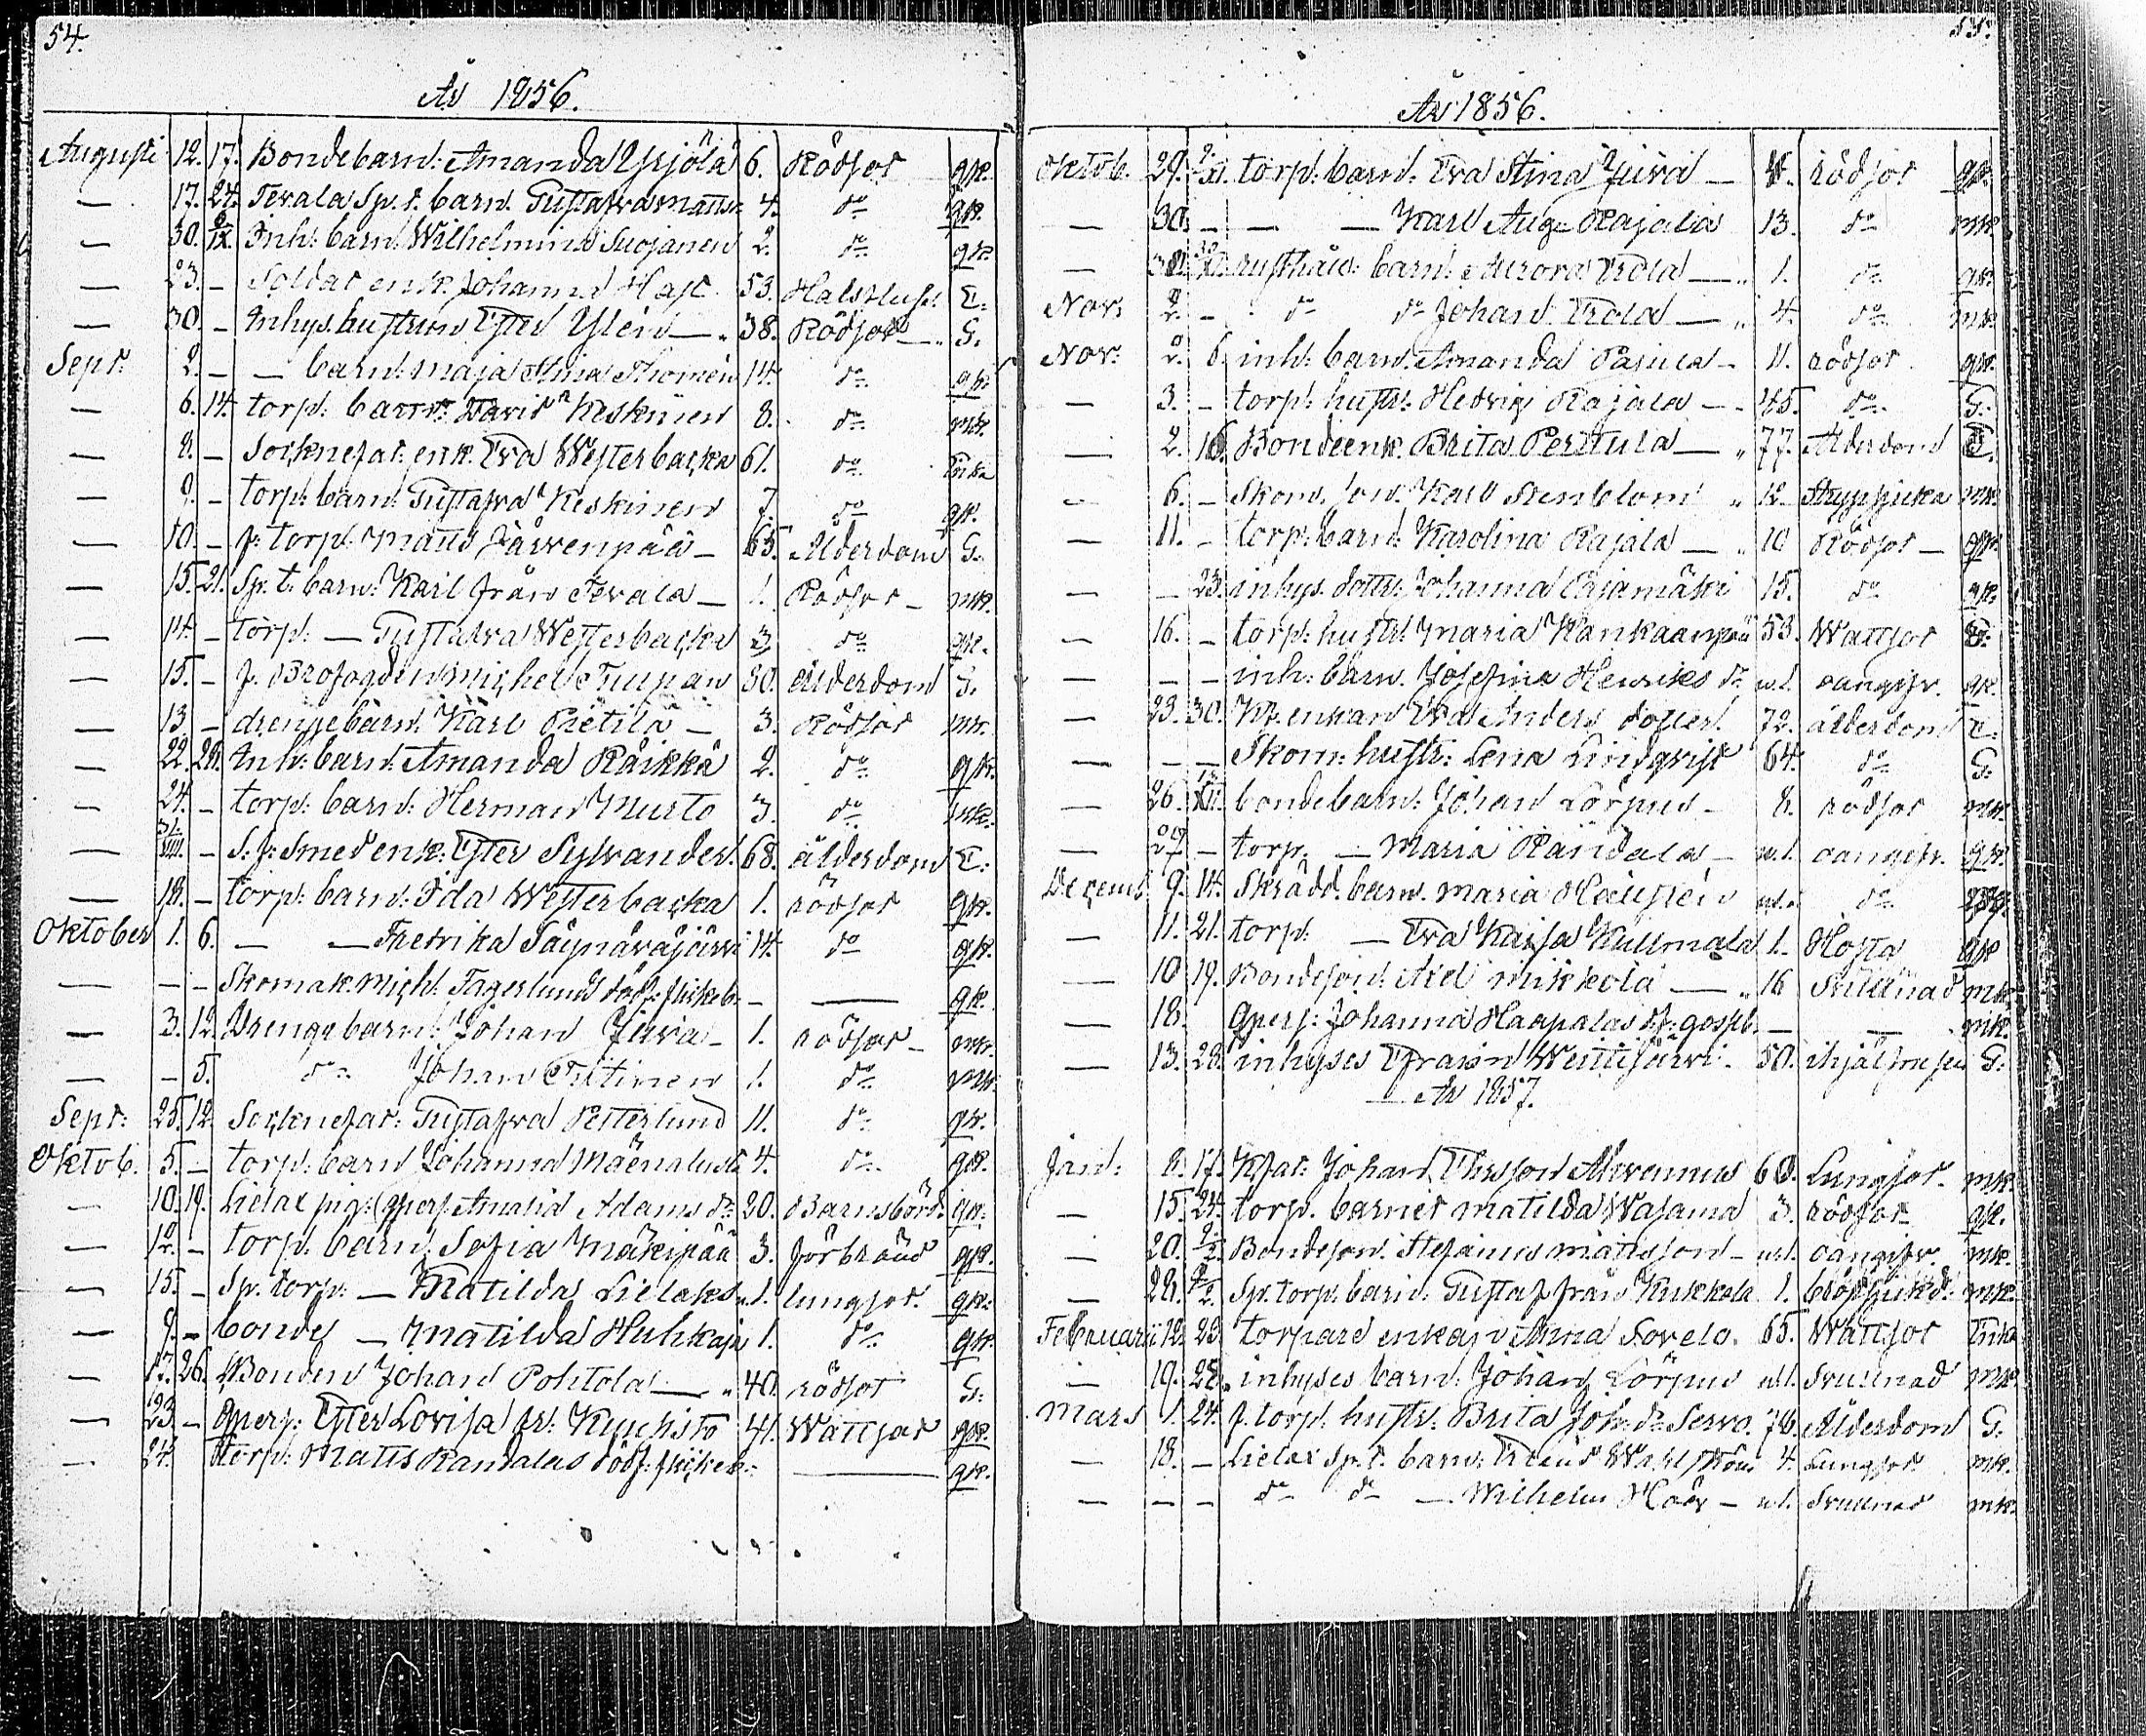 54.
År 1856.
Augusti 12. 17. Bondebarn: Amanda Yrjölä 6. Rödsot qk.
— 17. 24. Tevala Sp. t. barn. Gustafva Matts 4. do qk.
— 30. 6/IX. Inh: barn. Wilhelmina Suojanen 2. do qk.
— 23. — Soldat enk. Johanna Hast 53. Halsflusf. E.
— 30. — Inhys. hustrun Ester Ylén — 38. Rödsot — G.
Sept. 2. — — barn: Maja Stina Thomén 14. do qk.
— 6. 14. torp: barn: David Keskinen 8. do mk.
— 8. — Socknefat. enk. Eva Westerbacka 61. do Enka
— 9. — torp: barn: Gustafva Keskinen 7. do qk.
— 10. — f: torp: Matts Järvenpää — 65. Ålderdom G.
— 15. 21. Sp. t. barn: Karl från Tevala — 1. Rödsot — mk.
— 14. — torp: — Gustafva Westerbacka 3. do qk.
— 15. — f. Brofogden Michel Tulpan 80. ålderdom G.
— 13 — drengebarn: Karl Pietilä — 3. Rödsot mk.
— 22. 28. Inh: barn: Amanda Räikkä 2. do qk.
— 24. — torp: barn: Herman Murto 3. do mk.
— 31/VIII. — S. f: Smed enk: Ester Sylvander. 68. ålderdom E:
— 18. — torp: barn: Ida Westerbacka 1. rödsot qk.
Oktober 1. 6. — — Fredrika Säynäväjärvi 14. do qk.
— — — Skomak. Mich: Fagerlunds död: flickeb. — — qk.
— 3. 12. Drenge barn: Johan Juva — 1. rödsot — mk.
— — 5. do Johan Tritinen 1. do mk.
Sept: 25. 12. Socknefat: Gustafva Petterlund 11. do qk.
Oktob. 5. — torp: barn Johanna Mäenalusta 4. do qk.
— 10. 19. Lielax pig: qpers. Amalia Adams dr. 20. Barnsbörd. qk.
— 12. — torp: barn: Sofia Mäkipää 3. förbränd qk.
— 15. — Sp. torp: — Matilda Lielaks 1. lungsot. qk.
— 9. — bonde — Matilda Huhkaja 1. do qk.
— 17. 26. Bonden Johan Pohtola — 40. rödsot G.
— 23. — qpers: Ester Lovisa fr: Kuuchisto 41. Wattsot qk.
— 24. torp: Matts Kandalas död: flickeb: — qk.
55.
År 1856.
Oktob. 29. 2/XI. torp: barn: Eva Stina Juva — 4. rödsot qk.
— 30. — — — Karl Aug. Rajala 13. do mk.
— rusthåll: barn: Aurora Trola — 1. do qk.
Nov. 2. — do do Johan Trola — 4. do mk.
Nov: 2. 6. inh: barn. Amanda Pasula — 11. rödsot qk.
— 3. — torp: hustr: Hedvig Rajala — 45. do G.
— 2. 16. Bondeenk. Brita Perttula — 77. Ålderdom E.
— 6. — Skom. son. Karl Stenblom 12 Strypsjuka mk.
— 11. — torp: barn: Karolina Rajala — 10 Rödsot — qk.
— — 23. inhys. dottr: Johanna Pajamäki 15. do qk.
— 16. — torp: hustr: Maria Kankaanpää 53. Wattsot G.
— — — inh: barn. Josefina Henriks dr. ul. oangifv. qk.
— 23. 30. Kp. enkan Eva Anders dotter. 72. ålderdom E.
— — — Skom: hustr: Lena Lindqvist 64. do G.
— 26. XII. bondebarn: Johan Lörpus — 8. rödsot mk.
— 27 — torp. — Maria Kandala — ul. oangifv. qk.
Decemb. 9. 14. Skrädd. barn. Maria Hällstén ul. do
— 11. 21. torp: — Eva Kajsa Kullmala 1. Hosta qk
— 10 19. Bondeson: Axel Mikkola — 16 Svullnad mk.
— 18. qpers: Johanna Haapalas df: gosseb. — — mk.
— 13. 28. inhyses Efraim Wentijärvi. 50. ihjälfrusen G.
År 1857.
Jan: 8. 17. Kfat: Johan Thesson Ahvenus 60. Lungsot. mk.
— 15. 24. torp. barnet Matilda Wasama 3. rödsot qk.
— 20. 2/2. Bondeson. Stefanus Mattsson — ul. oangifv. mk.
— 28. 2/2. Sp. torp. barn. Gustaf från Kukkola 1. bröstsjukd: mk.
Februarii 12. 23. torpare enkan Anna Sovelo. 65. Wattsot Enka
— 19. 28. inhyses barn: Johan Lörpus ul. Svullnad mk.
Mars 1. 24. f. torp. hustr: Brita Joh. dr Servo. 76. Ålderdom G.
— 18. — Lielax Sp. t. barn: 4. Lungsot. mk.
— — — do do — Wilhelm Höök — ul. Svullnad mk.